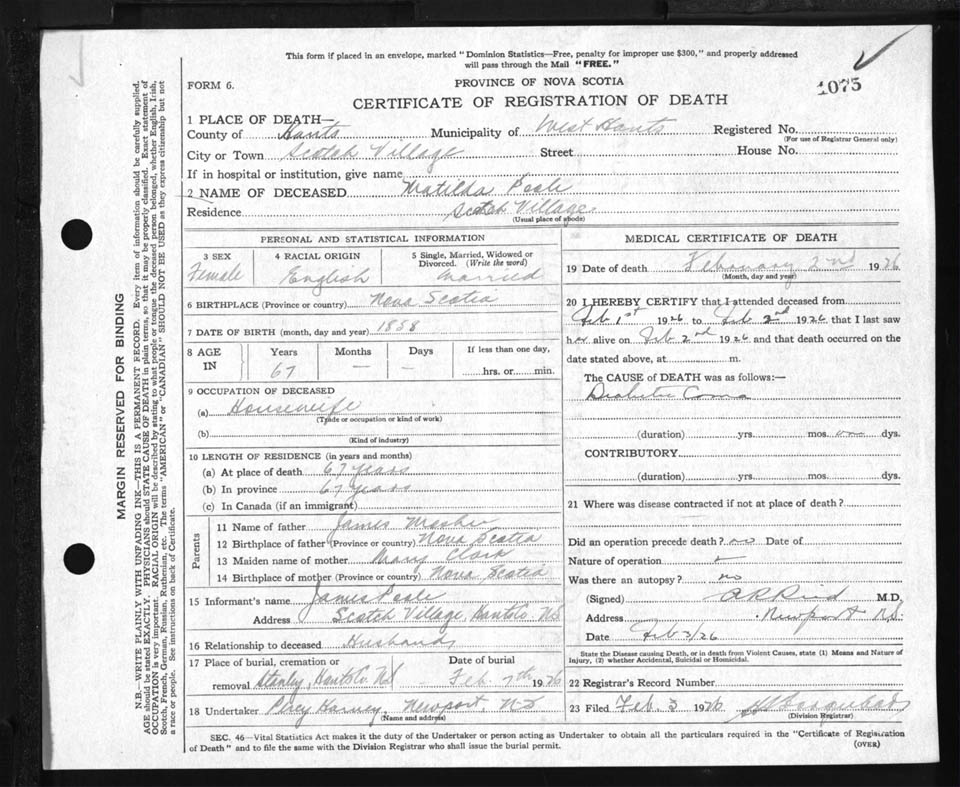 This form if placed in an envelope, marked "Dominion Statistics—Free, penalty for improper use $300," and properly addressed
will pass through the Mail "FREE."
FORM 6.
PROVINCE OF NOVA SCOTIA
1075
CERTIFICATE OF REGISTRATION OF DEATH
1 PLACE OF DEATH—
County of Hants Municipality of West Hants Registered No.
(For use of Registrar General only)
City or Town Scotch Village Street House No.
If in hospital or institution, give name
2 NAME OF DECEASED Matilda Poole
Residence Scotch Village
(Usual place of abode)
PERSONAL AND STATISTICAL INFORMATION
3 SEX 4 RACIAL ORIGIN 5 Single, Married, Widowed or
Divorced. (Write the word)
Female English Married
6 BIRTHPLACE (Province or country) Nova Scotia
7 DATE OF BIRTH (month, day and year) 1858
8 AGE IN Years Months Days If less than one day,
67 — — hrs. or min.
9 OCCUPATION OF DECEASED
(a) Housewife
(Trade or occupation or kind of work)
(b)
(Kind of industry)
10 LENGTH OF RESIDENCE (in years and months)
(a) At place of death 67 years
(b) In province 67 years
(c) In Canada (if an immigrant)
Parents
11 Name of father James Mosher
12 Birthplace of father (Province or country) Nova Scotia
13 Maiden name of mother Mary Clark
14 Birthplace of mother (Province or country) Nova Scotia
15 Informant's name James Poole
Address Scotch Village, Hants Co. N.S
16 Relationship to deceased Husband
17 Place of burial, cremation or Date of burial
removal Stanley, Hants Co. N.S Feb. 7th 1926
18 Undertaker Percy Harvey, Newport, N.S
(Name and address)
MEDICAL CERTIFICATE OF DEATH
19 Date of death February 2nd 1926
(Month, day and year)
20 I HEREBY CERTIFY that I attended deceased from
Feb 1st 1926 to Feb 2nd 1926 that I last saw
her alive on Feb 2nd 1926 and that death occurred on the
date stated above, at m.
The CAUSE OF DEATH was as follows:—
Diabetic Coma
(duration) yrs. mos. dys.
CONTRIBUTORY
(duration) yrs. mos. dys.
21 Where was disease contracted if not at place of death?
Did an operation precede death? no Date of
Nature of operation
Was there an autopsy? no
(Signed) M.D.
Address Newport N.S.
Date Feb 3/26
State the Disease Causing Death, or in death from Violent Causes, state (1) Means and Nature of
Injury, (2) whether Accidental, Suicidal or Homicidal.
22 Registrar's Record Number
23 Filed Feb. 3 1926
(Division Registrar)
SEC. 46—Vital Statistics Act makes it the duty of the Undertaker or person acting as Undertaker to obtain all the particulars required in the "Certificate of Registration
of Death" and to file the same with the Division Registrar who shall issue the burial permit.
(OVER)
MARGIN RESERVED FOR BINDING
N.B.—WRITE PLAINLY WITH UNFADING INK—THIS IS A PERMANENT RECORD. Every item of information should be carefully supplied.
AGE should be stated EXACTLY. PHYSICIANS should STATE CAUSE OF DEATH in plain terms, so that it may be properly classified. Exact statement of
OCCUPATION is very important. RACIAL ORIGIN will be described by stating to what people or tongue the deceased person belonged, whether English, Irish,
Scotch, French, German, Russian, Ruthenian, etc. The terms "AMERICAN" or "CANADIAN" SHOULD NOT BE USED as they express citizenship but not
a race or people. See instructions on back of Certificate.